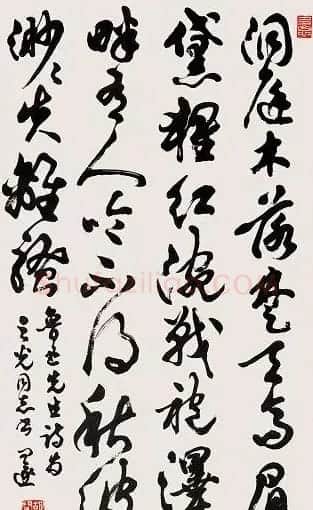 洞庭木落楚天高眉
黛猩红涴战袍澤
畔有人吟不得秋波
渺々失離騷
鲁迅先生诗
之光同志